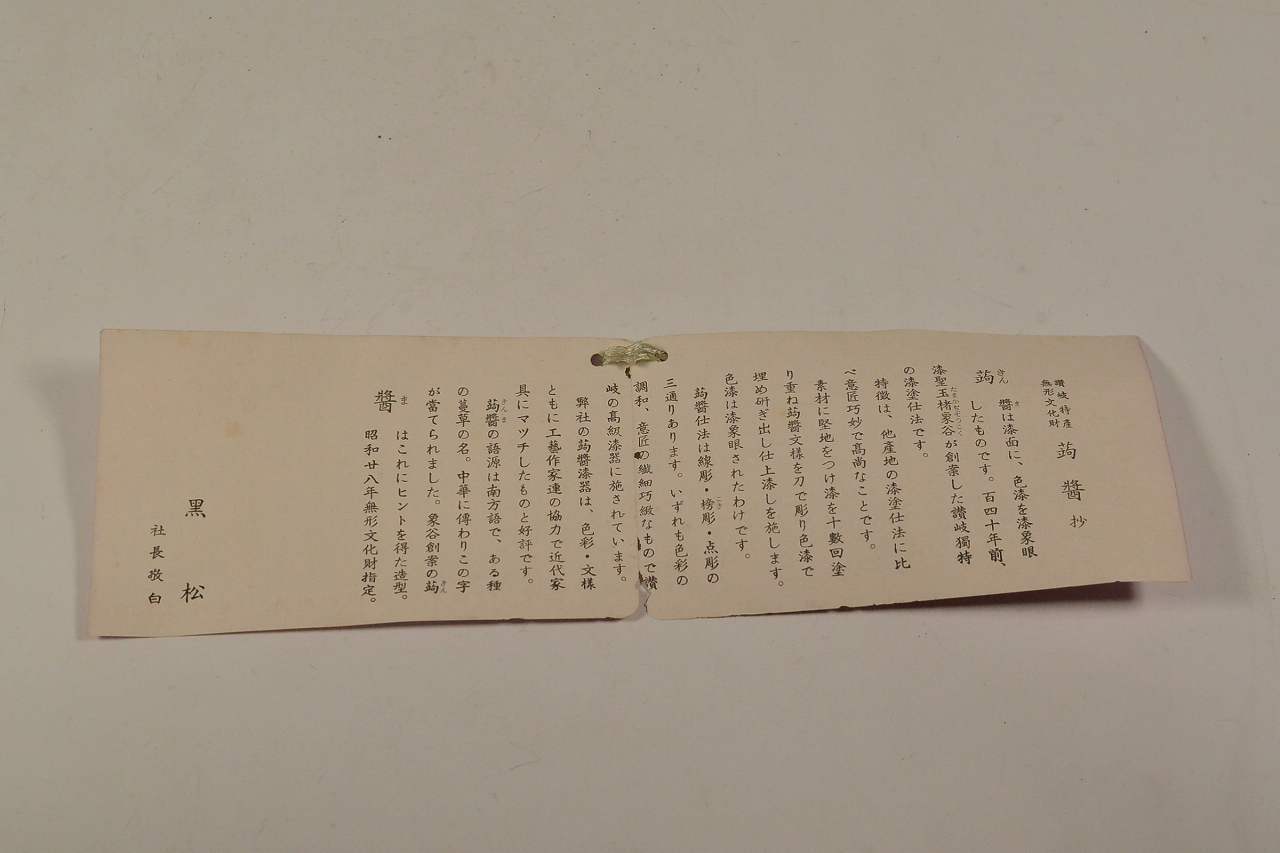 讃岐特産
無形文化財
蒟醬抄
蒟醬は漆面に、色漆を漆象眼
したものです。百四十年前、
漆聖玉楮象谷が創案した讃岐獨特
の漆塗仕法です。
特徴は、他産地の漆塗仕法に比
べ意匠巧妙で高尚なことです。
素材に堅地をつけ漆を十數回塗
り重ね蒟醬文様を刀で彫り色漆で
埋め研ぎ出し仕上漆しを施します。
色漆は漆象眼されたわけです。
蒟醬仕法は線彫・榜彫・点彫の
三通りあります。いずれも色彩の
調和、意匠の繊細巧緻なもので讃
岐の高級漆器に施されています。
弊社の蒟醬漆器は、色彩・文様
ともに工藝作家連の協力で近代家
具にマッチしたものと好評です。
蒟醬の語源は南方語で、ある種
の蔓草の名。中華に傳わりこの字
が當てられました。象谷創案の蒟
醬はこれにヒントを得た造型。
昭和廿八年無形文化財指定。
黒松
社長敬白